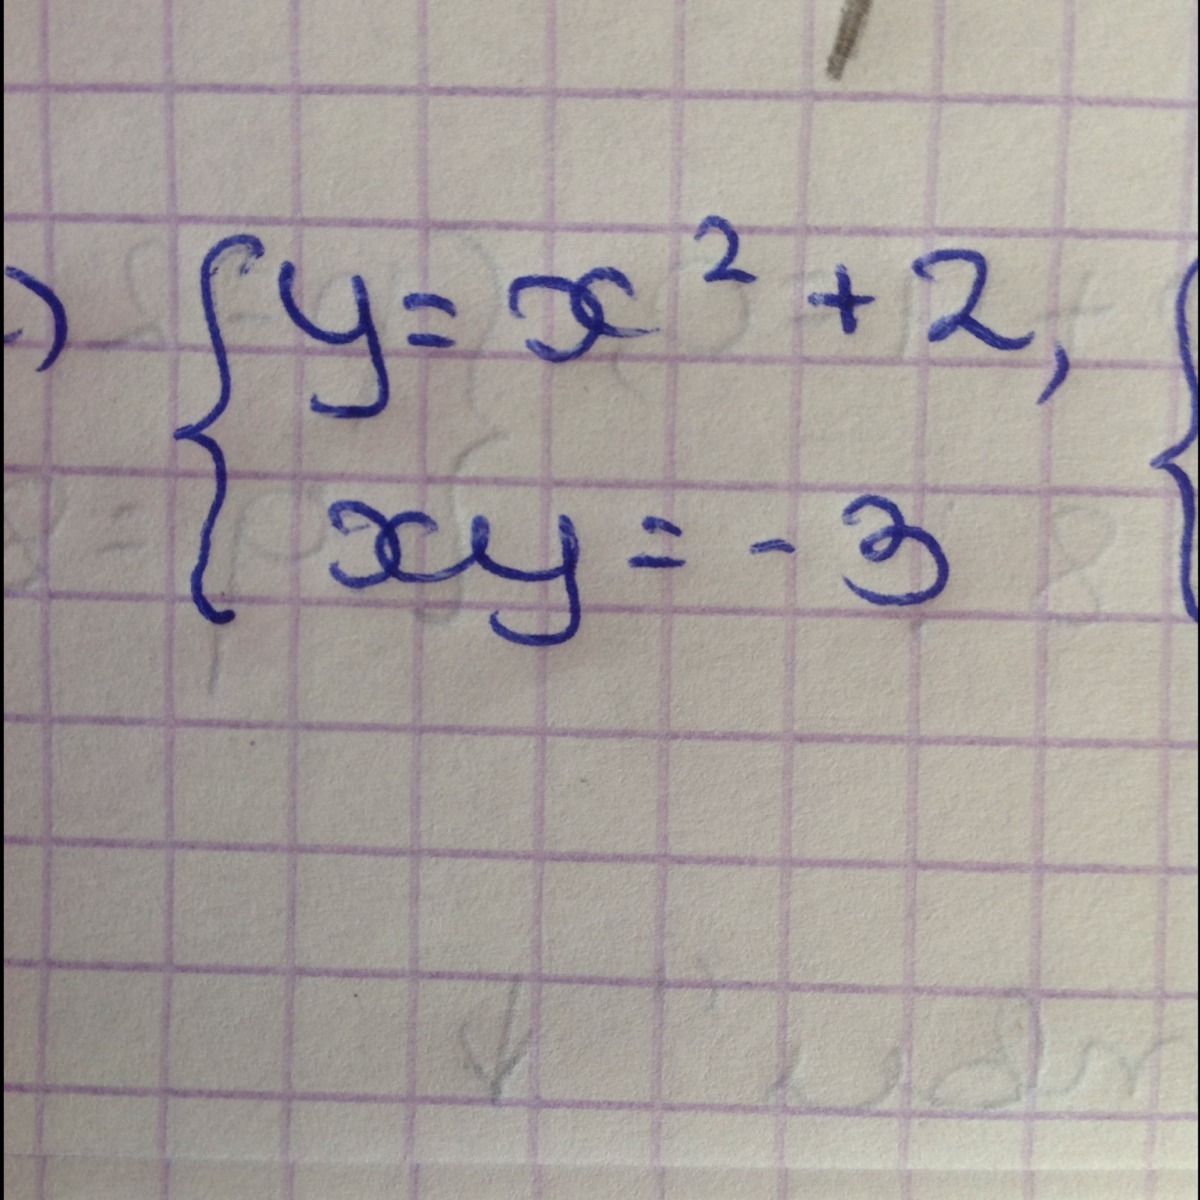 ) { y = x² + 2, {
xy = -3